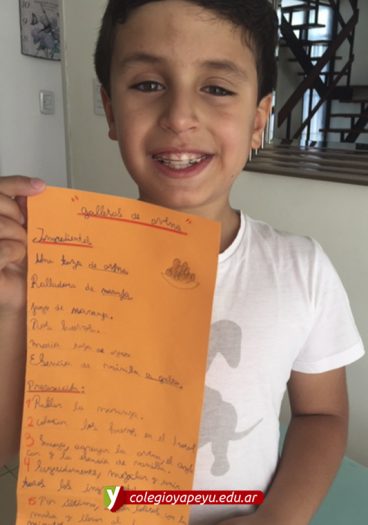 "galletas de avena"
Ingredientes
Una taza de avena
Ralladura de naranja
jugo de naranja.
Dos huevos.
media taza de
Esencia de vainilla a gusto.
Preparación:
1 Rallar la naranja.
2 colocar los huevos en el bowl
3 luego agregar la avena, el
con y la esencia de vainilla.
4 mezclar y
todos los
5 Por último,
colegioyapeyu.edu.ar